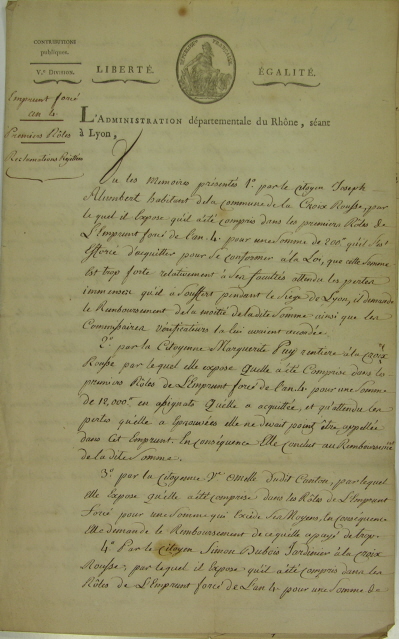 CONTRIBUTIONS
publiques.
V.e DIVISION.
LIBERTÉ.
ÉGALITÉ.
Emprunt forcé
an 4
Premiers Rôles
Reclamations Rejettées
L'ADMINISTRATION départementale du Rhône, séant
à Lyon,
Vu les Memoires présentés 1.° par le citoyen Joseph
habitant de la commune de la Croix Rousse, par
lequel il Expose qu'il a été compris dans les premiers Rôles de
L'Emprunt forcé de l'an 4. pour une Somme de 200.# qu'il s'est
Efforcé d'acquitter pour se conformer à la Loi, que cette Somme
Est trop forte relativement à ses facultés attendu les pertes
immenses qu'il a Souffert pendant le Siège de Lyon, il demande
le Remboursement de la moitié de la dite Somme ainsi que les
Commissaires vérificateurs la lui avaient accordée.
2.° par la Citoyenne Marguerite Puy rentiere à la Croix
Rousse par lequel elle expose Qu'elle a été Comprise dans les
premiers Rôles de L'Emprunt forcé de l'an 4. pour une Somme
de 12,000.# en assignats Qu'elle a acquittée, et qu'attendu les
pertes qu'elle a Eprouvées elle ne devait point être appellée
dans cet Emprunt. En conséquence Elle conclut au Remboursement
de la dite Somme.
3.° par la Citoyenne V.e dudit Canton, par lequel
Elle Expose qu'elle a été comprise dans les Rôles de L'Emprunt
Forcé pour une Somme qui Excède Ses Moyens, En conséquence
Elle demande le Remboursement de ce qu'elle a payé de trop.
4.° Par le Citoyen Simon Dubois Jardinier à la Croix
Rousse, par lequel il Expose qu'il a été compris dans les
Rôles de L'Emprunt forcé de L'an 4. pour une Somme de